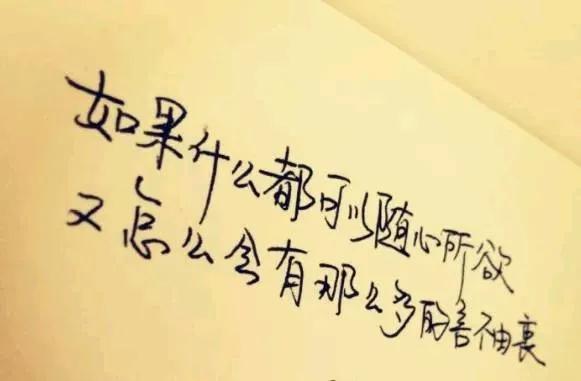 如果什么都可以随心所欲
又怎么会有那么多的言不由衷